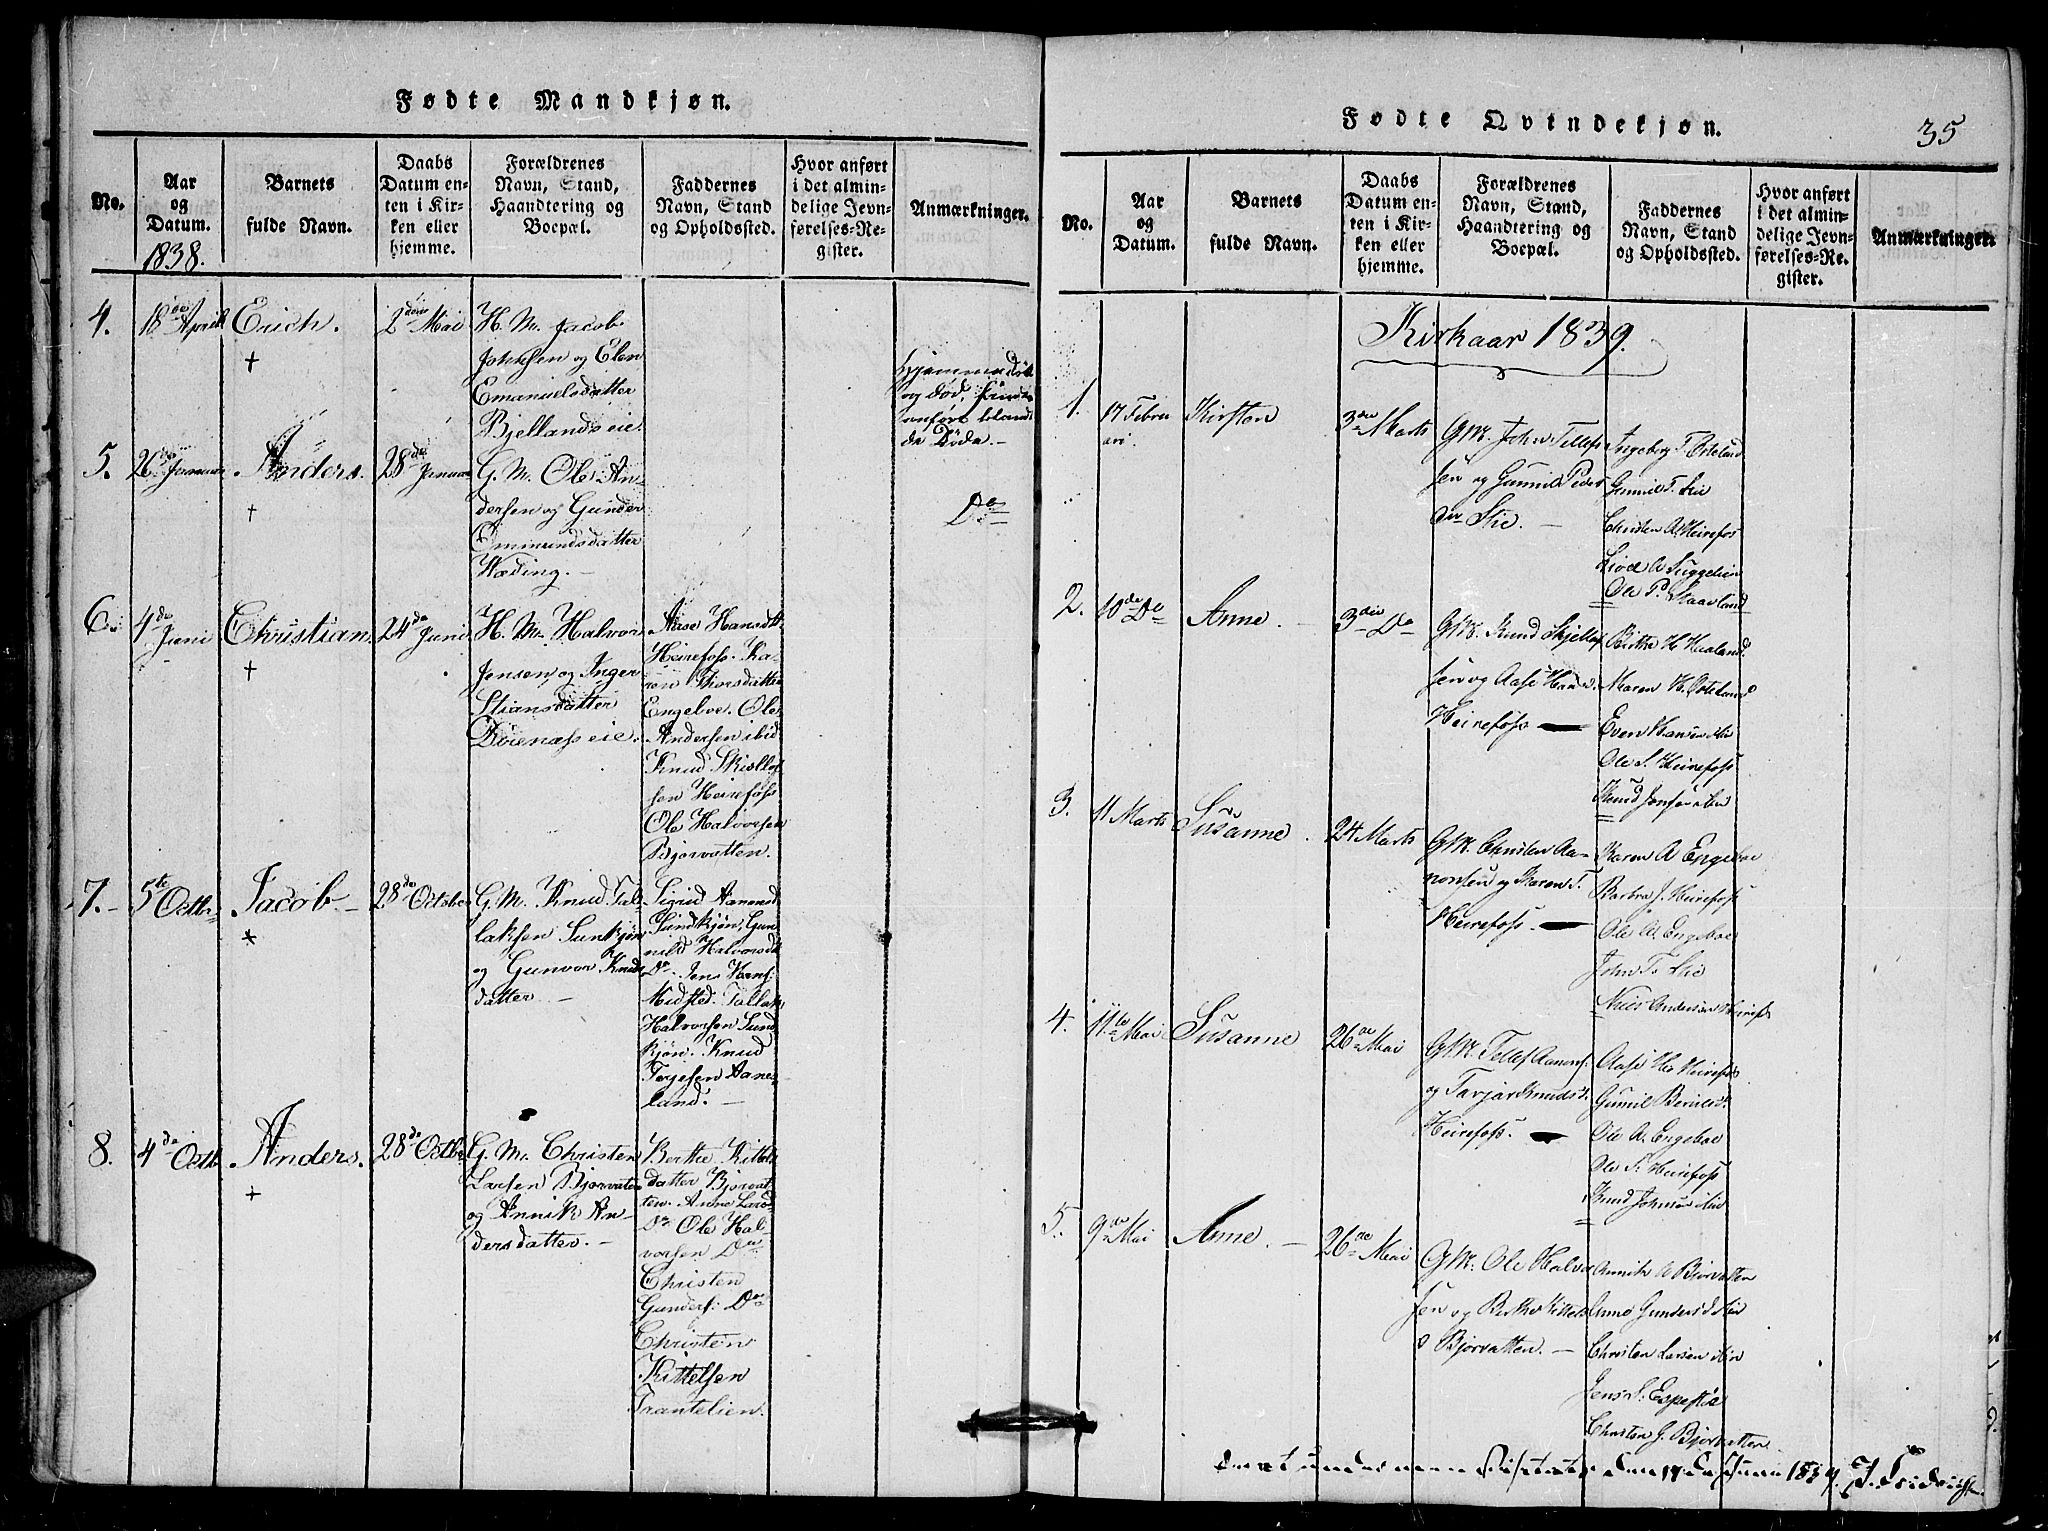 Fødte Mandkjøn.
No.
Aar
og
Datum.
1838.
Barnets
fulde Navn.
Daabs
Datum en-
ten i Kir-
ken eller
hjemme.
Forældrenes
Navn, Stand,
Haandtering og
Boepæl.
Faddernes
Navn, Stand
og Opholdssted.
Hvor anført
i det almin-
delige Jevn-
førelses-Re-
gister.
Anmærkninger.
4.
18de April
Erich.
+
2den Mai
H. M. Jacob
Johnsen og Elen
Emanuelsdatter
Bjellands eie.
Hjemmedøbt
og død,
anført blandt
de Döde. —
5.
26de Januar
Anders.
+
28de Januar
G. M. Ole An-
dersen og Gunder
Ommundsdatter
Wæding. —
Do
6.
4de Juni
Christian.
+
24de Juni
H. M. Halvor
Jensen og Inger
Stiansdatter
Düenæs eie.
Aase Hansdtt
Heirefoss. Ka-
ren Thorsdatter
Engelve. Ole
Andersen ibid
Knud Skiellof
sen Heirefoss
Ole Halvorsen
Bjorvatten.
7. —
5te Octbr
Jacob —
*
28de October
G. M. Knud Tal-
laksen Sunkjön
og Gunvor Knuds
datter —
Sigrid Aanonsd
Sundkjön, Gun-
nild Halvorsdt
Do. Jens
Midsted. Tallak
Halvorsen Sund
kjön. Knud
Terjesen Aane-
land. —
8.
4de Octb.
Anders.
+
28de Octb.
G. M. Christen
Larsen Bjorvatten
og Annik An-
dersdatter. —
Berthe Kittels
datter Bjorvat-
ten. Anne Larsd
Do Ole Hal-
vorsen Do
Christen
Gunders: Do
Christen
Kittelsen
Trantelien.
Fødte Qvindekjøn.
35
No.
Aar
og
Datum.
Barnets
fulde Navn.
Daabs
Datum en-
ten i Kir-
ken eller
hjemme.
Forældrenes
Navn, Stand,
Haandtering og
Boepæl.
Faddernes
Navn, Stand
og Opholdssted.
Hvor anført
i det almin-
delige Jevn-
førelses-Re-
gister.
Anmærkninger.
Kirkaar 1839.
1.
17 Febru
ari
Kirsten
3die Marts
GM. John Tellefs
sen og Gunnil Peders
dtr Lie. —
Ingeborg T. Østeland
Gunnil T. Lie
Christen A. Heirefos
A
Ole P. Skaarland
2.
10de Do
Anne —
3die Do
GM. Knud Skjellof
sen og Aase Hansd.
Heirefoss —
Birthe H. Hualand.
Maren H. Østeland
Even Hansen
Ole S. Heirefoss
Knud Jonsen
3.
11 Marts
Susanne.
24 Marts
GM. Christen Aa-
nonsen og Karen T.
Heirefoss. —
Karen A Engeboe
Barbra J. Heirefoss
Ole A. Engeboe
John T. Lie
Niels Andersen Heirefos
4.
11te Mai
Susanne
26de Mai
GM. Tellef Aanons.
og Tarjer Knudsd.
Heirefoss. —
Aase Heirefos
Gunnil
Ole A. Engeboe
Ole S. Heirefoss
Knud Johnsen
5.
9de Mai
Anne. —
26de Mai
GM. Ole Halvor
sen og Birthe Kittels
d Bjorvatten. —
Annik A Bjorvatten
Anne Gundersd
Christen Larsen
Jens S. Espestöe
Christen J. Bjorvatten
under Visitats den 19de Juni 1839. J. Fridrichsen.